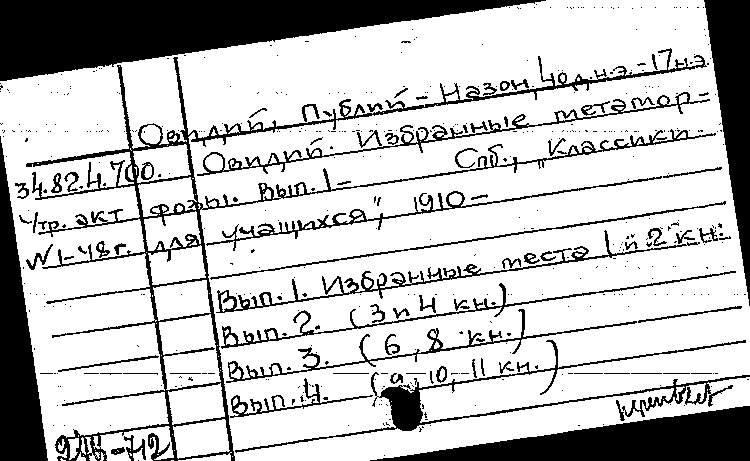 Овидий, Публий-Назон, 40 д.н.э.-17 н.э.
34.82.4.700. Овидий. Избранные метамор-
фозы. Вып. 1- Спб., "Классики
для учащихся", 1910-
Вып. 1. Избранные места 1 и 2 кн.
Вып. 2. (3 и 4 кн.)
Вып. 3. (6, 8 кн.)
Вып. 4. (9, 10, 11 кн.)